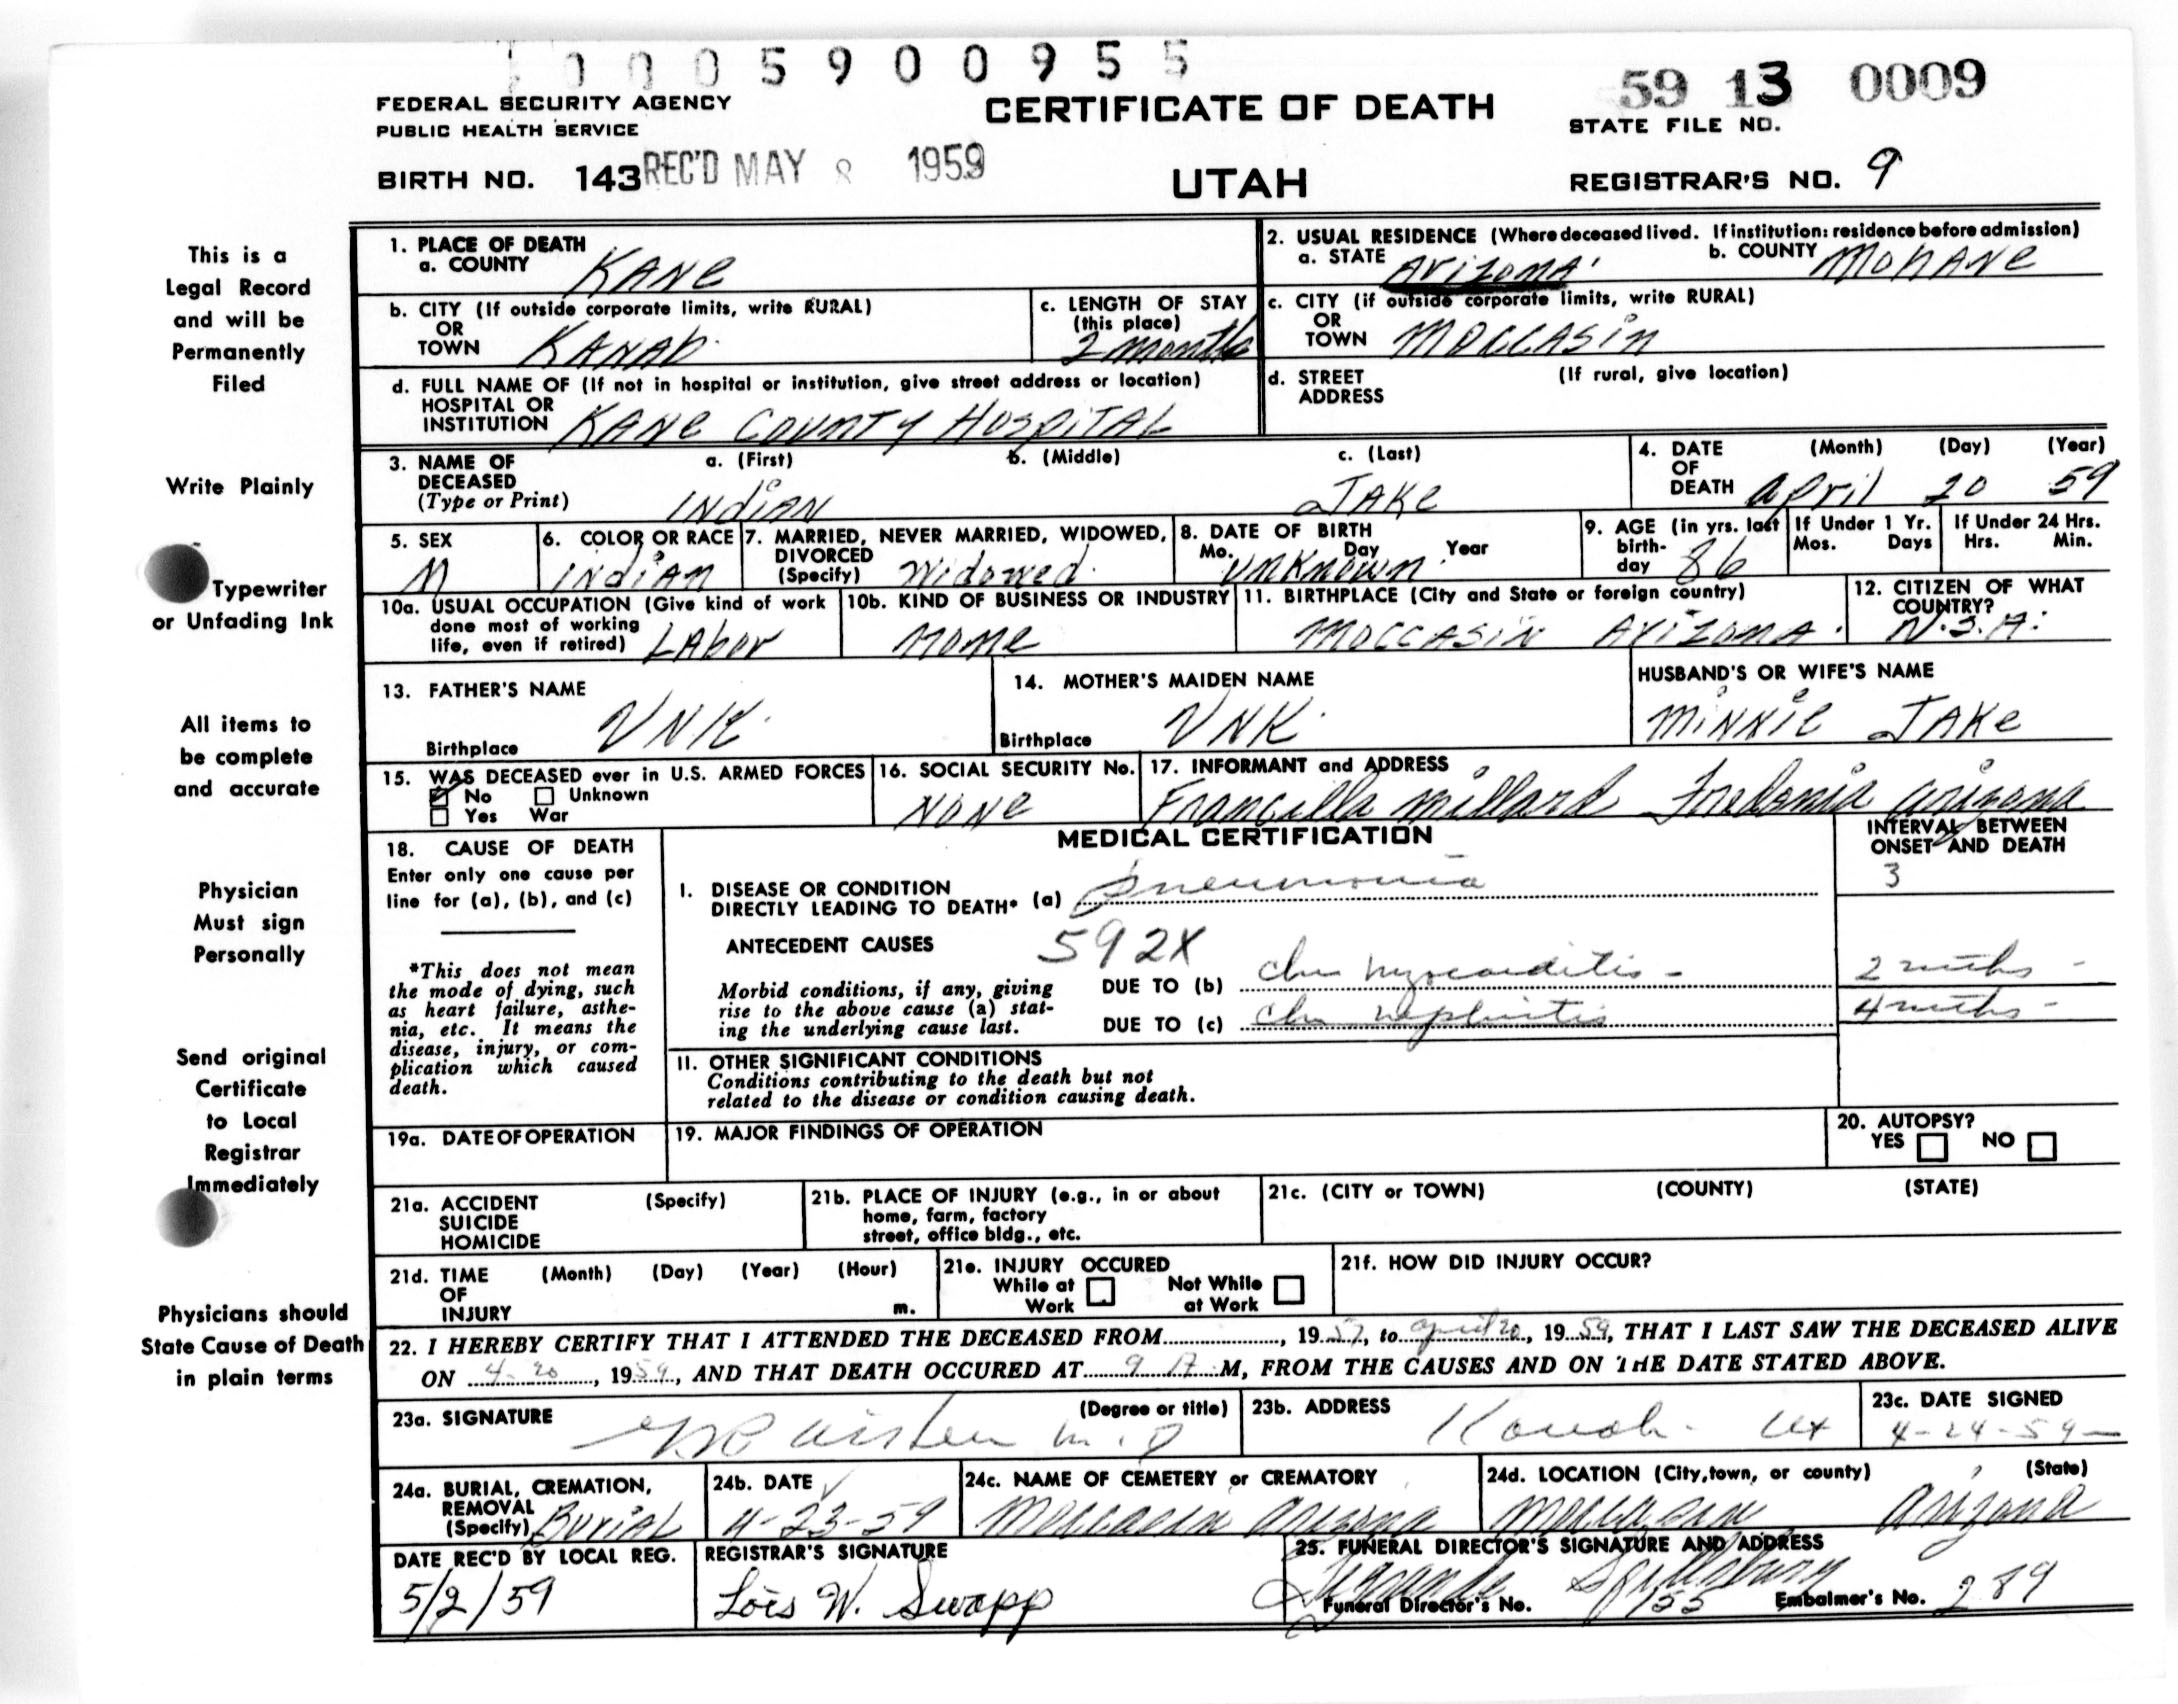 0005900955
59 13 0009
FEDERAL SECURITY AGENCY
PUBLIC HEALTH SERVICE
CERTIFICATE OF DEATH
STATE FILE NO.
BIRTH NO. 143 REC'D MAY 8 1959
UTAH
REGISTRAR'S NO. 9
This is a
Legal Record
and will be
Permanently
Filed
Write Plainly
Typewriter
or Unfading Ink
All items to
be complete
and accurate
Physician
Must sign
Personally
Send original
Certificate
to Local
Registrar
Immediately
Physicians should
State Cause of Death
in plain terms
1. PLACE OF DEATH
a. COUNTY KANE
2. USUAL RESIDENCE (Where deceased lived. If institution: residence before admission)
a. STATE ARIZONA b. COUNTY MOHAVE
b. CITY (If outside corporate limits, write RURAL)
OR
TOWN KANAB
c. LENGTH OF STAY
(this place)
2 months
c. CITY (if outside corporate limits, write RURAL)
OR
TOWN MOCCASIN
d. FULL NAME OF (If not in hospital or institution, give street address or location)
HOSPITAL OR
INSTITUTION KANE COUNTY HOSPITAL
d. STREET (If rural, give location)
ADDRESS
3. NAME OF
DECEASED
(Type or Print)
a. (First) b. (Middle) c. (Last)
INDIAN JAKE
4. DATE (Month) (Day) (Year)
OF
DEATH April 20 59
5. SEX
M
6. COLOR OR RACE
INDIAN
7. MARRIED, NEVER MARRIED, WIDOWED,
DIVORCED
(Specify) Widowed
8. DATE OF BIRTH
Mo. Day Year
UNKNOWN
9. AGE (in yrs. last
birth-
day 86
If Under 1 Yr.
Mos. Days
If Under 24 Hrs.
Hrs. Min.
10a. USUAL OCCUPATION (Give kind of work
done most of working
life, even if retired) LABOR
10b. KIND OF BUSINESS OR INDUSTRY
11. BIRTHPLACE (City and State or foreign country)
MOCCASIN ARIZONA
12. CITIZEN OF WHAT
COUNTRY?
13. FATHER'S NAME
UNK.
Birthplace
14. MOTHER'S MAIDEN NAME
UNK.
Birthplace
HUSBAND'S OR WIFE'S NAME
MINNIE JAKE
15. WAS DECEASED ever in U.S. ARMED FORCES
No Unknown
Yes War
16. SOCIAL SECURITY No.
NONE
17. INFORMANT and ADDRESS
Francella Millard Fredonia Arizona
18. CAUSE OF DEATH
Enter only one cause per
line for (a), (b), and (c)
*This does not mean
the mode of dying, such
as heart failure, asthe-
nia, etc. It means the
disease, injury, or com-
plication which caused
death.
MEDICAL CERTIFICATION
INTERVAL BETWEEN
ONSET AND DEATH
I. DISEASE OR CONDITION
DIRECTLY LEADING TO DEATH* (a) pneumonia 3
ANTECEDENT CAUSES 592X
Morbid conditions, if any, giving
rise to the above cause (a) stat-
ing the underlying cause last.
DUE TO (b) chr myocarditis - 2 mths -
DUE TO (c) chr nephritis 4 mths -
II. OTHER SIGNIFICANT CONDITIONS
Conditions contributing to the death but not
related to the disease or condition causing death.
19a. DATE OF OPERATION
19. MAJOR FINDINGS OF OPERATION
20. AUTOPSY?
YES NO
21a. ACCIDENT (Specify)
SUICIDE
HOMICIDE
21b. PLACE OF INJURY (e.g., in or about
home, farm, factory
street, office bldg., etc.
21c. (CITY or TOWN) (COUNTY) (STATE)
21d. TIME (Month) (Day) (Year) (Hour)
OF
INJURY m.
21e. INJURY OCCURED
While at Not While
Work at Work
21f. HOW DID INJURY OCCUR?
22. I HEREBY CERTIFY THAT I ATTENDED THE DECEASED FROM, 1957, to April 20, 1959, THAT I LAST SAW THE DECEASED ALIVE
ON 4-20, 1959, AND THAT DEATH OCCURED AT 9 A M, FROM THE CAUSES AND ON THE DATE STATED ABOVE.
23a. SIGNATURE (Degree or title)
M.D
23b. ADDRESS
Kanab - Ut
23c. DATE SIGNED
4-24-59
24a. BURIAL, CREMATION,
REMOVAL
(Specify) Burial
24b. DATE
4-23-59
24c. NAME OF CEMETERY or CREMATORY
Moccasin Arizona
24d. LOCATION (City, town, or county) (State)
Moccasin Arizona
DATE REC'D BY LOCAL REG.
5/2/59
REGISTRAR'S SIGNATURE
Lois W. Swapp
25. FUNERAL DIRECTOR'S SIGNATURE AND ADDRESS
Spilsbury
Funeral Director's No. 155 Embalmer's No. 289